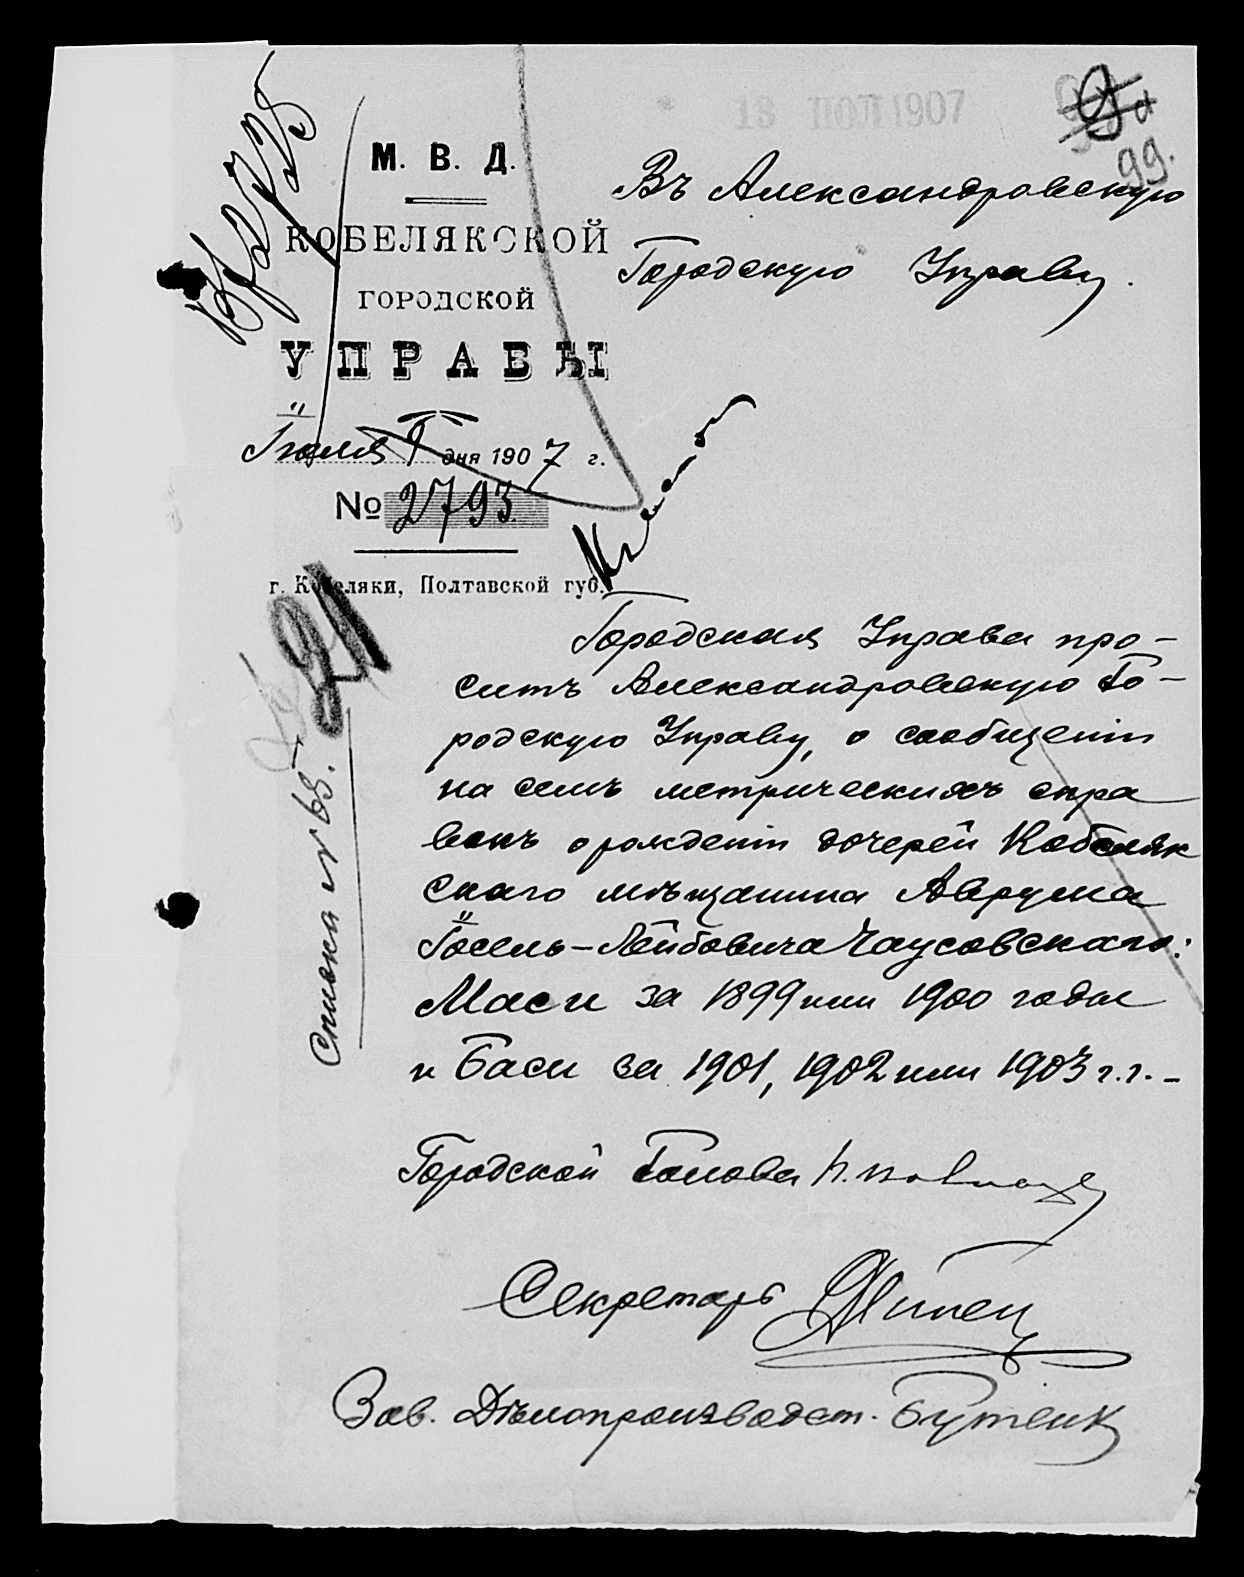 13 ІЮЛ 1907
99.
М. В. Д.
КОБЕЛЯКСКОЙ
ГОРОДСКОЙ
УПРАВЫ
Іюля 9 дня 1907 г.
№ 2793.
г. Кобеляки, Полтавской губ.
Въ Александровскую
Городскую Управу.
21
Списка № 65.
Городская Управа про-
ситъ Александровскую Го-
родскую Управу, о сообщеніи
на семъ метрическихъ спра
вокъ о рожденіи дочерей Кобеляк
скаго мѣщанина Аврума
Іосель-Лейбовича Чаусовскаго:
Маси за 1899 или 1900 годы
и Баси за 1901, 1902 или 1903 г.г. -
Городской Голова
Секретарь
Зав. Дѣлопроизводст. Бутенк